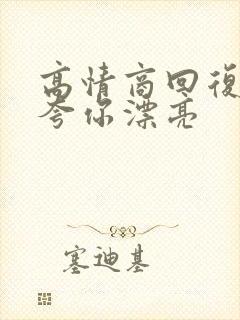 高情商回復
夸你漂亮
塞迪基